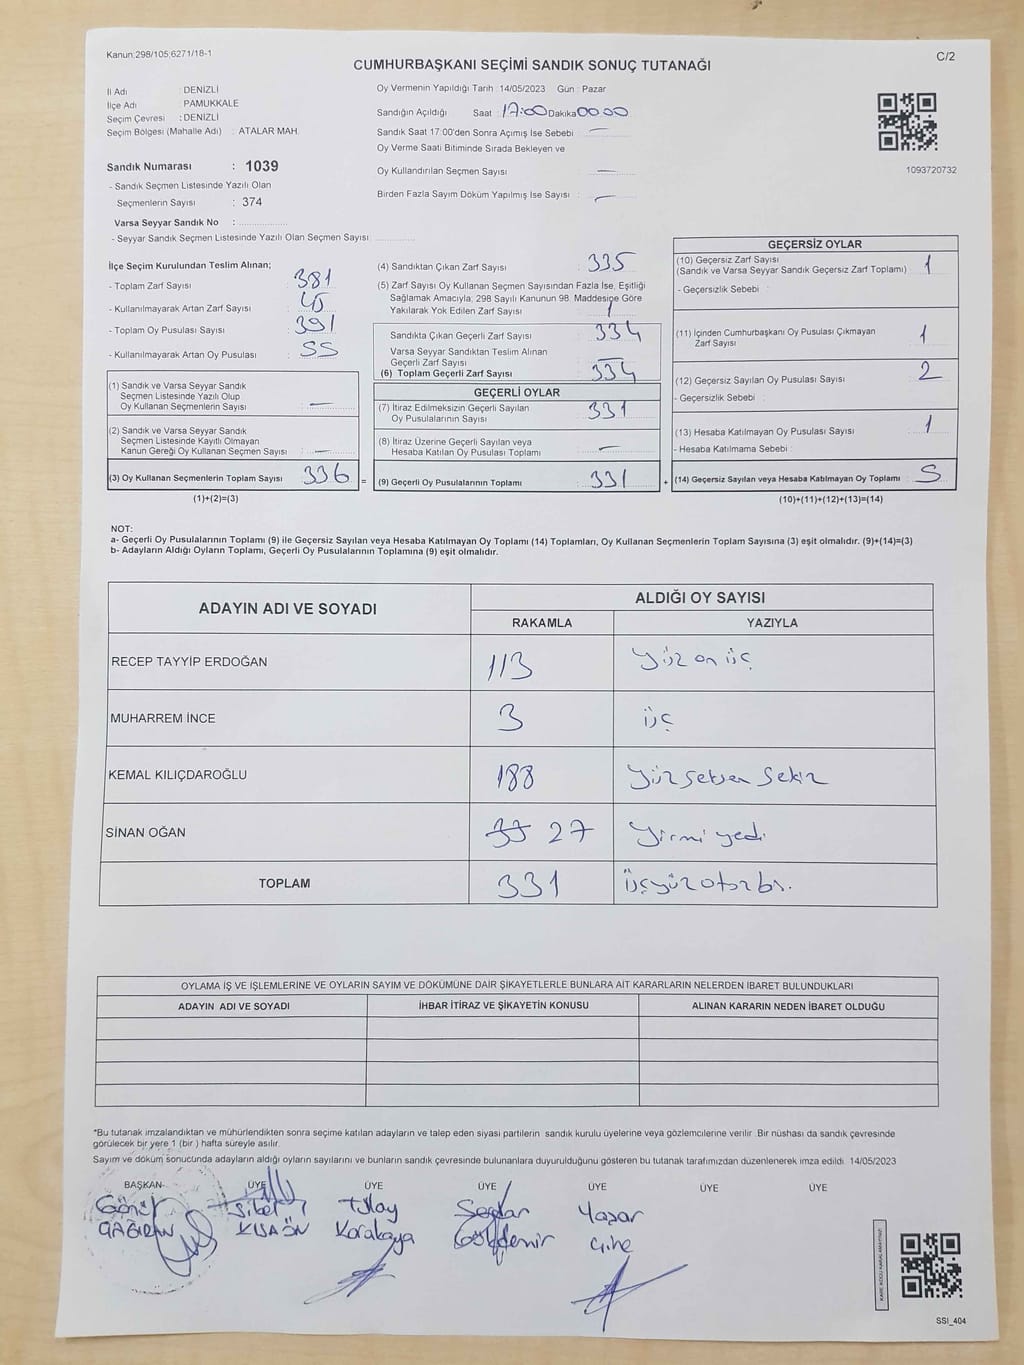 Kanun:298/105;6271/18-1
C/2
CUMHURBAŞKANI SEÇİMİ SANDIK SONUÇ TUTANAĞI
İl Adı : DENİZLİ
İlçe Adı : PAMUKKALE
Seçim Çevresi : DENİZLİ
Seçim Bölgesi (Mahalle Adı) : ATALAR MAH.
Oy Vermenin Yapıldığı Tarih : 14/05/2023 Gün : Pazar
Sandığın Açıldığı Saat : 17:00 Dakika 00.00
Sandık Saat 17:00'den Sonra Açımış İse Sebebi : —
Oy Verme Saati Bitiminde Sırada Bekleyen ve
Oy Kullandırılan Seçmen Sayısı : —
Birden Fazla Sayım Döküm Yapılmış İse Sayısı : —
1093720732
Sandık Numarası : 1039
- Sandık Seçmen Listesinde Yazılı Olan
Seçmenlerin Sayısı : 374
Varsa Seyyar Sandık No :
- Seyyar Sandık Seçmen Listesinde Yazılı Olan Seçmen Sayısı :
İlçe Seçim Kurulundan Teslim Alınan;
- Toplam Zarf Sayısı : 381
- Kullanılmayarak Artan Zarf Sayısı : 45
- Toplam Oy Pusulası Sayısı : 391
- Kullanılmayarak Artan Oy Pusulası : 55
(1) Sandık ve Varsa Seyyar Sandık
Seçmen Listesinde Yazılı Olup
Oy Kullanan Seçmenlerin Sayısı : —
(2) Sandık ve Varsa Seyyar Sandık
Seçmen Listesinde Kayıtlı Olmayan
Kanun Gereği Oy Kullanan Seçmen Sayısı : —
(3) Oy Kullanan Seçmenlerin Toplam Sayısı : 336
(1)+(2)=(3)
(4) Sandıktan Çıkan Zarf Sayısı : 335
(5) Zarf Sayısı Oy Kullanan Seçmen Sayısından Fazla İse, Eşitliği
Sağlamak Amacıyla; 298 Sayılı Kanunun 98. Maddesine Göre
Yakılarak Yok Edilen Zarf Sayısı : 1
Sandıkta Çıkan Geçerli Zarf Sayısı : 334
Varsa Seyyar Sandıktan Teslim Alınan
Geçerli Zarf Sayısı : —
(6) Toplam Geçerli Zarf Sayısı : 334
GEÇERLİ OYLAR
(7) İtiraz Edilmeksizin Geçerli Sayılan
Oy Pusulalarının Sayısı : 331
(8) İtiraz Üzerine Geçerli Sayılan veya
Hesaba Katılan Oy Pusulası Toplamı : —
= (9) Geçerli Oy Pusulalarının Toplamı : 331
GEÇERSİZ OYLAR
(10) Geçersiz Zarf Sayısı
(Sandık ve Varsa Seyyar Sandık Geçersiz Zarf Toplamı) : 1
- Geçersizlik Sebebi :
(11) İçinden Cumhurbaşkanı Oy Pusulası Çıkmayan
Zarf Sayısı : 1
(12) Geçersiz Sayılan Oy Pusulası Sayısı : 2
- Geçersizlik Sebebi :
(13) Hesaba Katılmayan Oy Pusulası Sayısı : 1
- Hesaba Katılmama Sebebi :
+ (14) Geçersiz Sayılan veya Hesaba Katılmayan Oy Toplamı : 5
(10)+(11)+(12)+(13)=(14)
NOT:
a- Geçerli Oy Pusulalarının Toplamı (9) ile Geçersiz Sayılan veya Hesaba Katılmayan Oy Toplamı (14) Toplamları, Oy Kullanan Seçmenlerin Toplam Sayısına (3) eşit olmalıdır. (9)+(14)=(3)
b- Adayların Aldığı Oyların Toplamı, Geçerli Oy Pusulalarının Toplamına (9) eşit olmalıdır.
ADAYIN ADI VE SOYADI
ALDIĞI OY SAYISI
RAKAMLA YAZIYLA
RECEP TAYYİP ERDOĞAN 113 Yüz on üç
MUHARREM İNCE 3 üç
KEMAL KILIÇDAROĞLU 188 Yüz seksen sekiz
SİNAN OĞAN 27 Yirmi yedi
TOPLAM 331 Üçyüz otuz bir.
OYLAMA İŞ VE İŞLEMLERİNE VE OYLARIN SAYIM VE DÖKÜMÜNE DAİR ŞİKAYETLERLE BUNLARA AİT KARARLARIN NELERDEN İBARET BULUNDUKLARI
ADAYIN ADI VE SOYADI İHBAR İTİRAZ VE ŞİKAYETİN KONUSU ALINAN KARARIN NEDEN İBARET OLDUĞU
*Bu tutanak imzalandıktan ve mühürlendikten sonra seçime katılan adayların ve talep eden siyasi partilerin sandık kurulu üyelerine veya gözlemcilerine verilir. Bir nüshası da sandık çevresinde
görülecek bir yere 1 (bir ) hafta süreyle asılır.
Sayım ve döküm sonucunda adayların aldığı oyların sayılarını ve bunların sandık çevresinde bulunanlara duyurulduğunu gösteren bu tutanak tarafımızdan düzenlenerek imza edildi. 14/05/2023
BAŞKAN ÜYE ÜYE ÜYE ÜYE ÜYE ÜYE
Sibel Tülay Yaşar
Karakaya
SSI_404